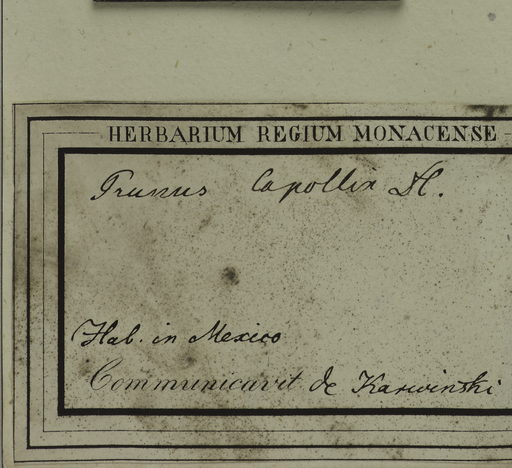 HERBARIUM REGIUM MONACENSE
Prunus Capollin
Hab. in Mexico
Communicavit de Karwinski